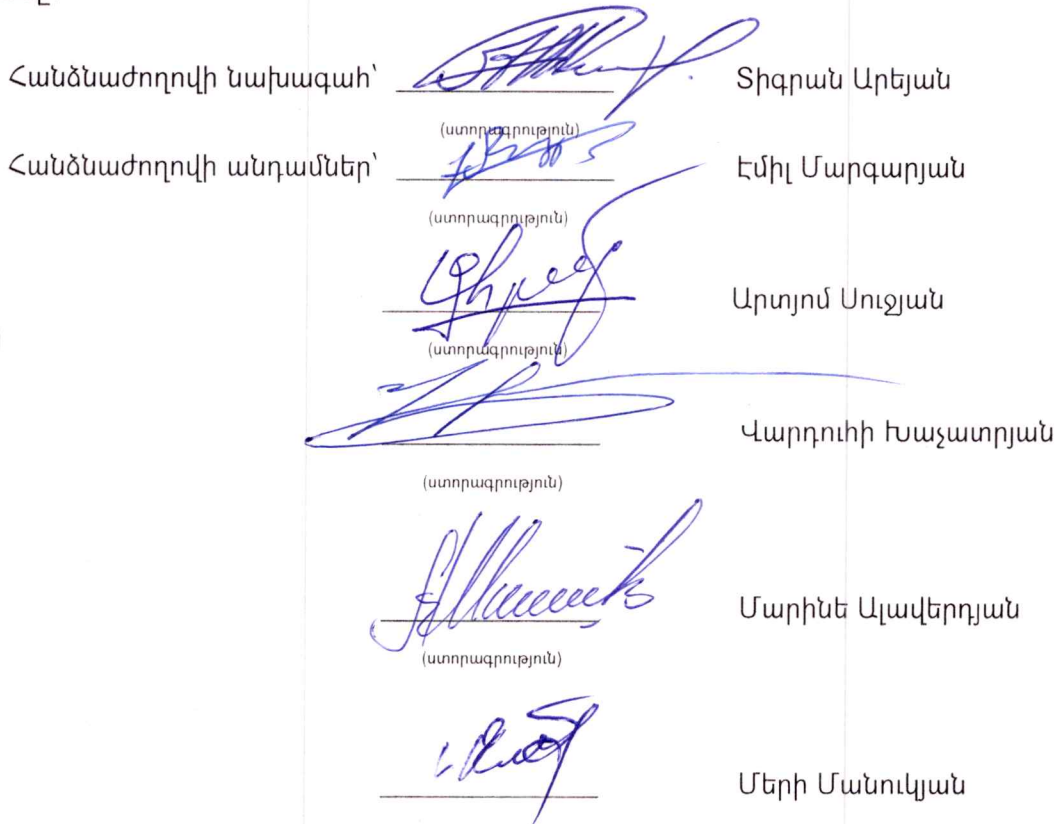 Հանձնաժողովի նախագահ՝ Տիգրան Արեյան
(ստորագրություն)
Հանձնաժողովի անդամներ՝ Էմիլ Մարգարյան
(ստորագրություն)
Արտյոմ Սուջյան
(ստորագրություն)
Վարդուհի Խաչատրյան
(ստորագրություն)
Մարինե Ալավերդյան
(ստորագրություն)
Մերի Մանուկյան